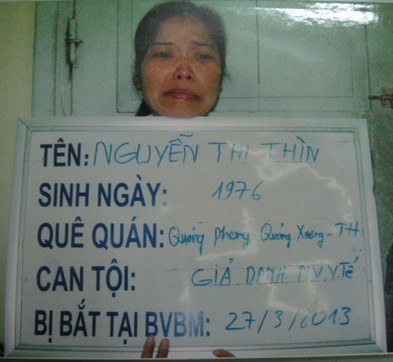 TÊN: NGUYỄN THỊ THÌN
SINH NGÀY: 1976
QUÊ QUÁN: Quảng Phong Quảng Xương - TH
CAN TỘI: GIẢ DANH N.V.Y.TẾ
BỊ BẮT TẠI BVBM: 27/3/2013